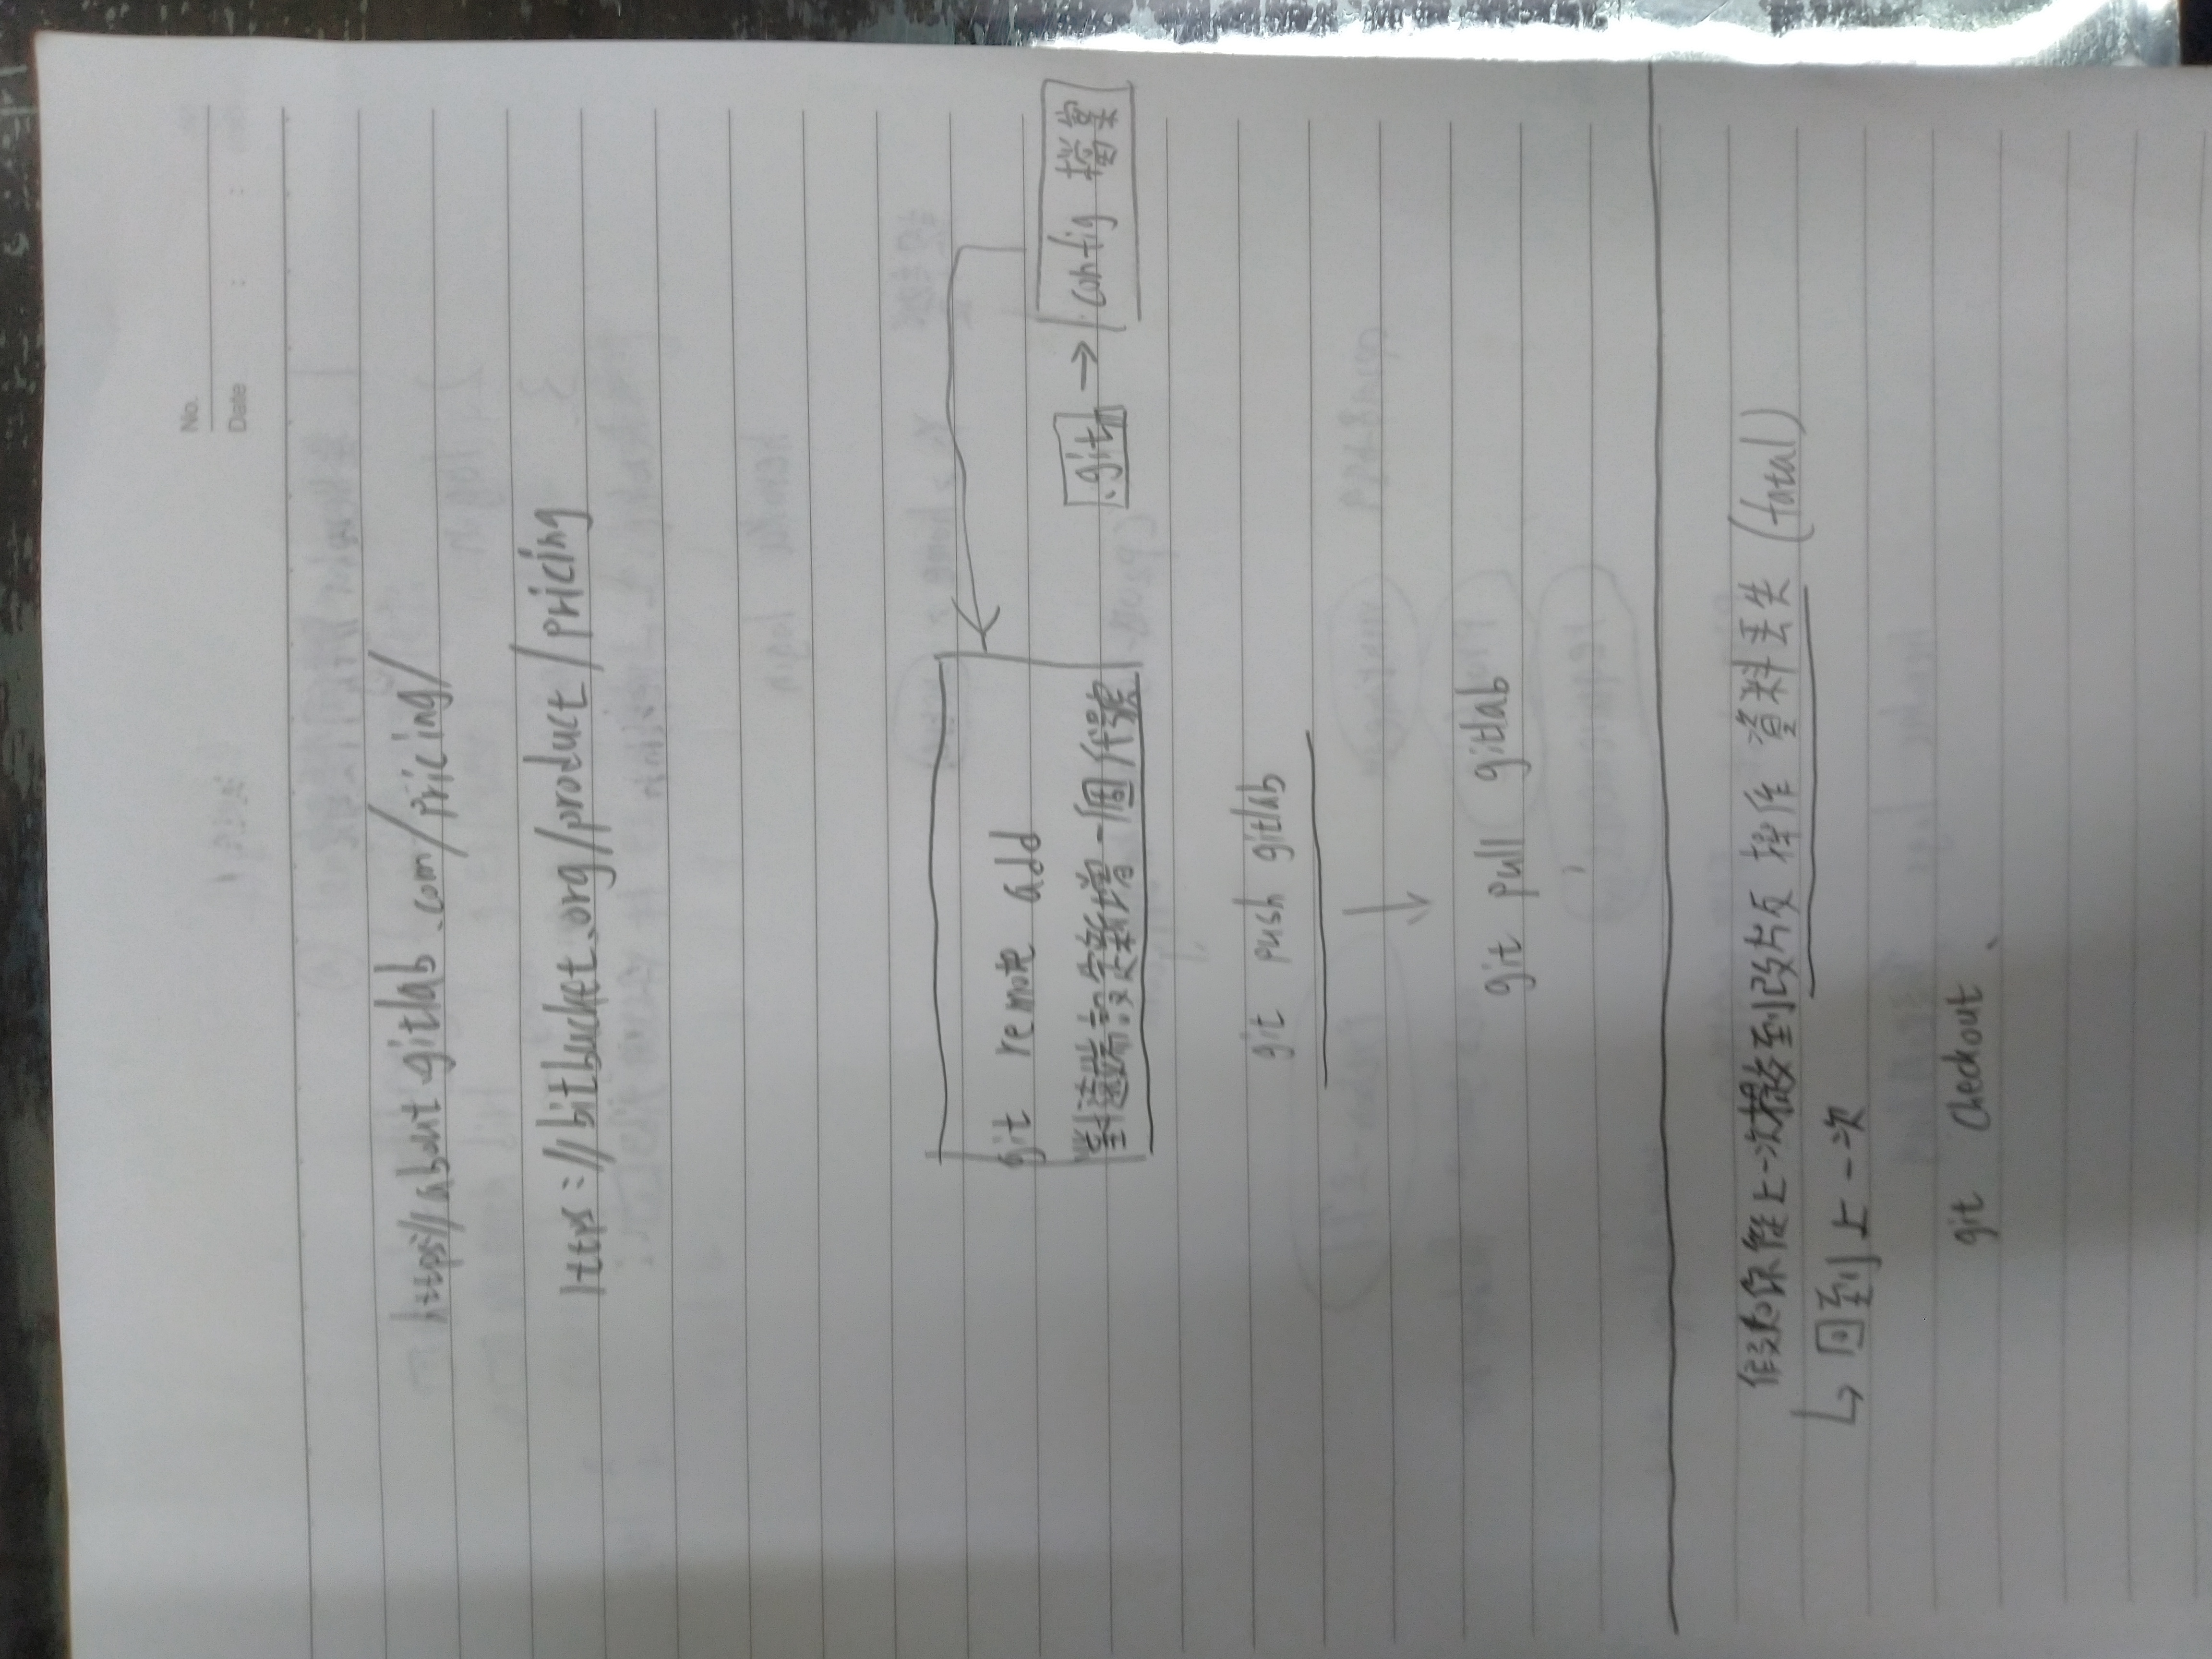 No.
Date : :
https://about.gitlab.com/pricing/
https://bitbucket.org/product/pricing
git remote add
對遠端設定新增一個代號
.git → config 檔案
git push gitlab
↓
git pull gitlab
假如你從上一次提交到改版 操作 資料丟失 (fatal)
↳ 回到上一次
git checkout